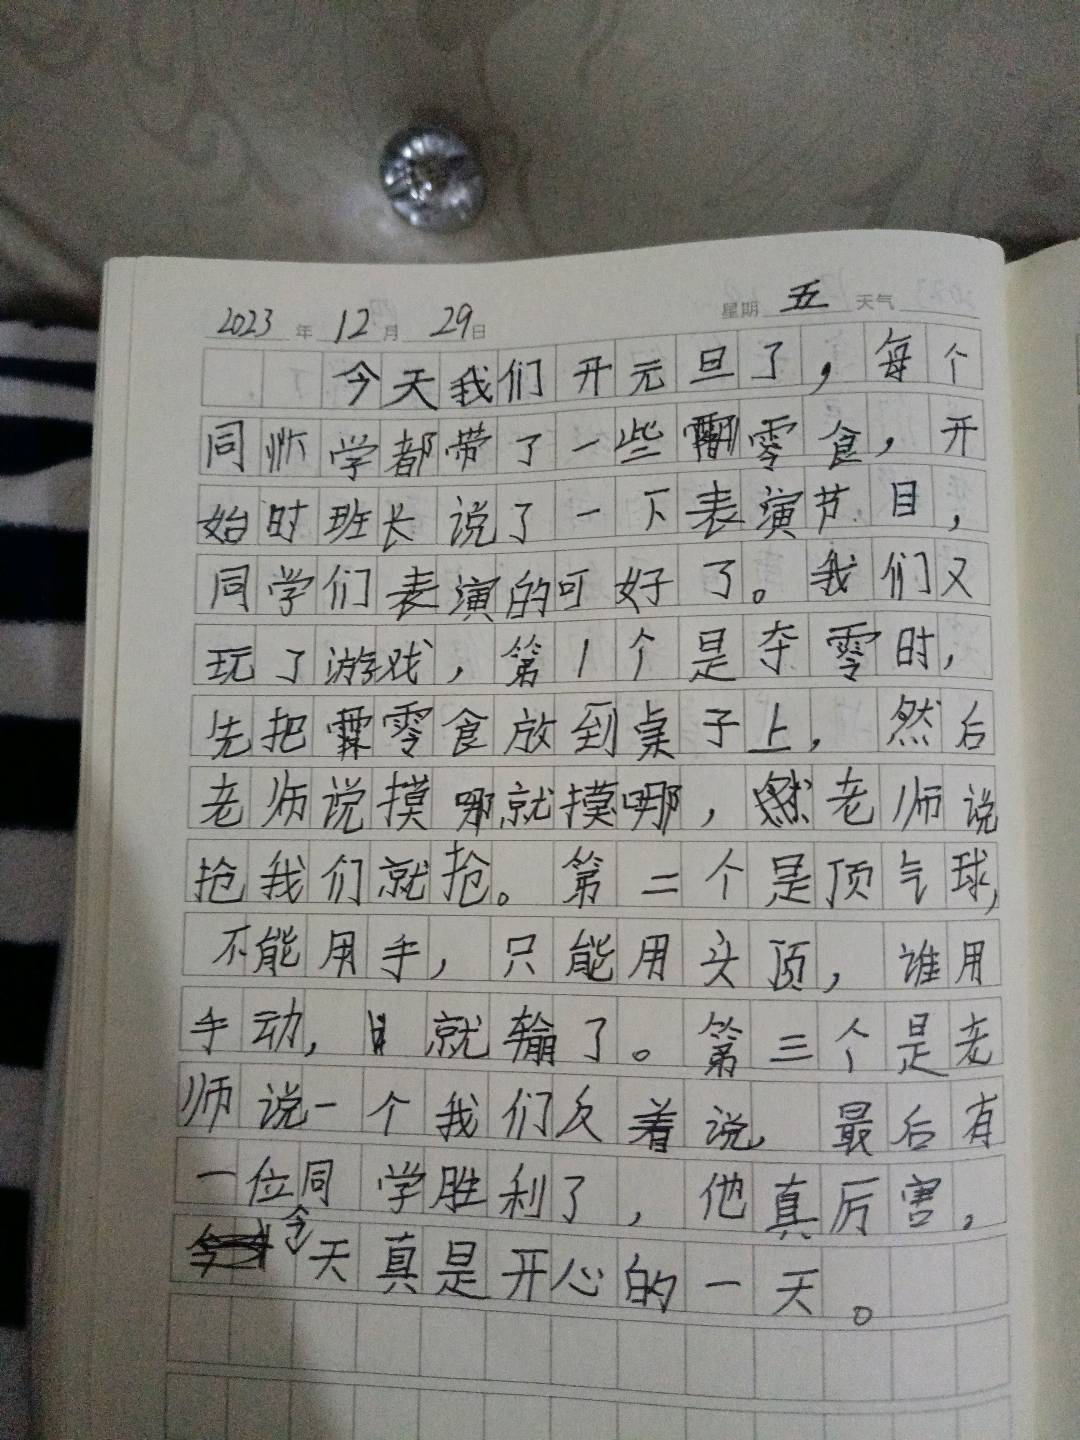 2023年12月29日 星期五天气
今天我们开元旦了，每个
同学都带了一些零食，开
始时班长说了一下表演节目，
同学们表演的可好了。我们又
玩了游戏，第1个是夺零时，
先把零食放到桌子上，然后
老师说摸哪就摸哪，老师说
抢我们就抢。第二个是顶气球，
不能用手，只能用头顶，谁用
手动，就输了。第三个是老
师说一个我们反着说，最后有
一位同学胜利了，他真厉害，
今天真是开心的一天。